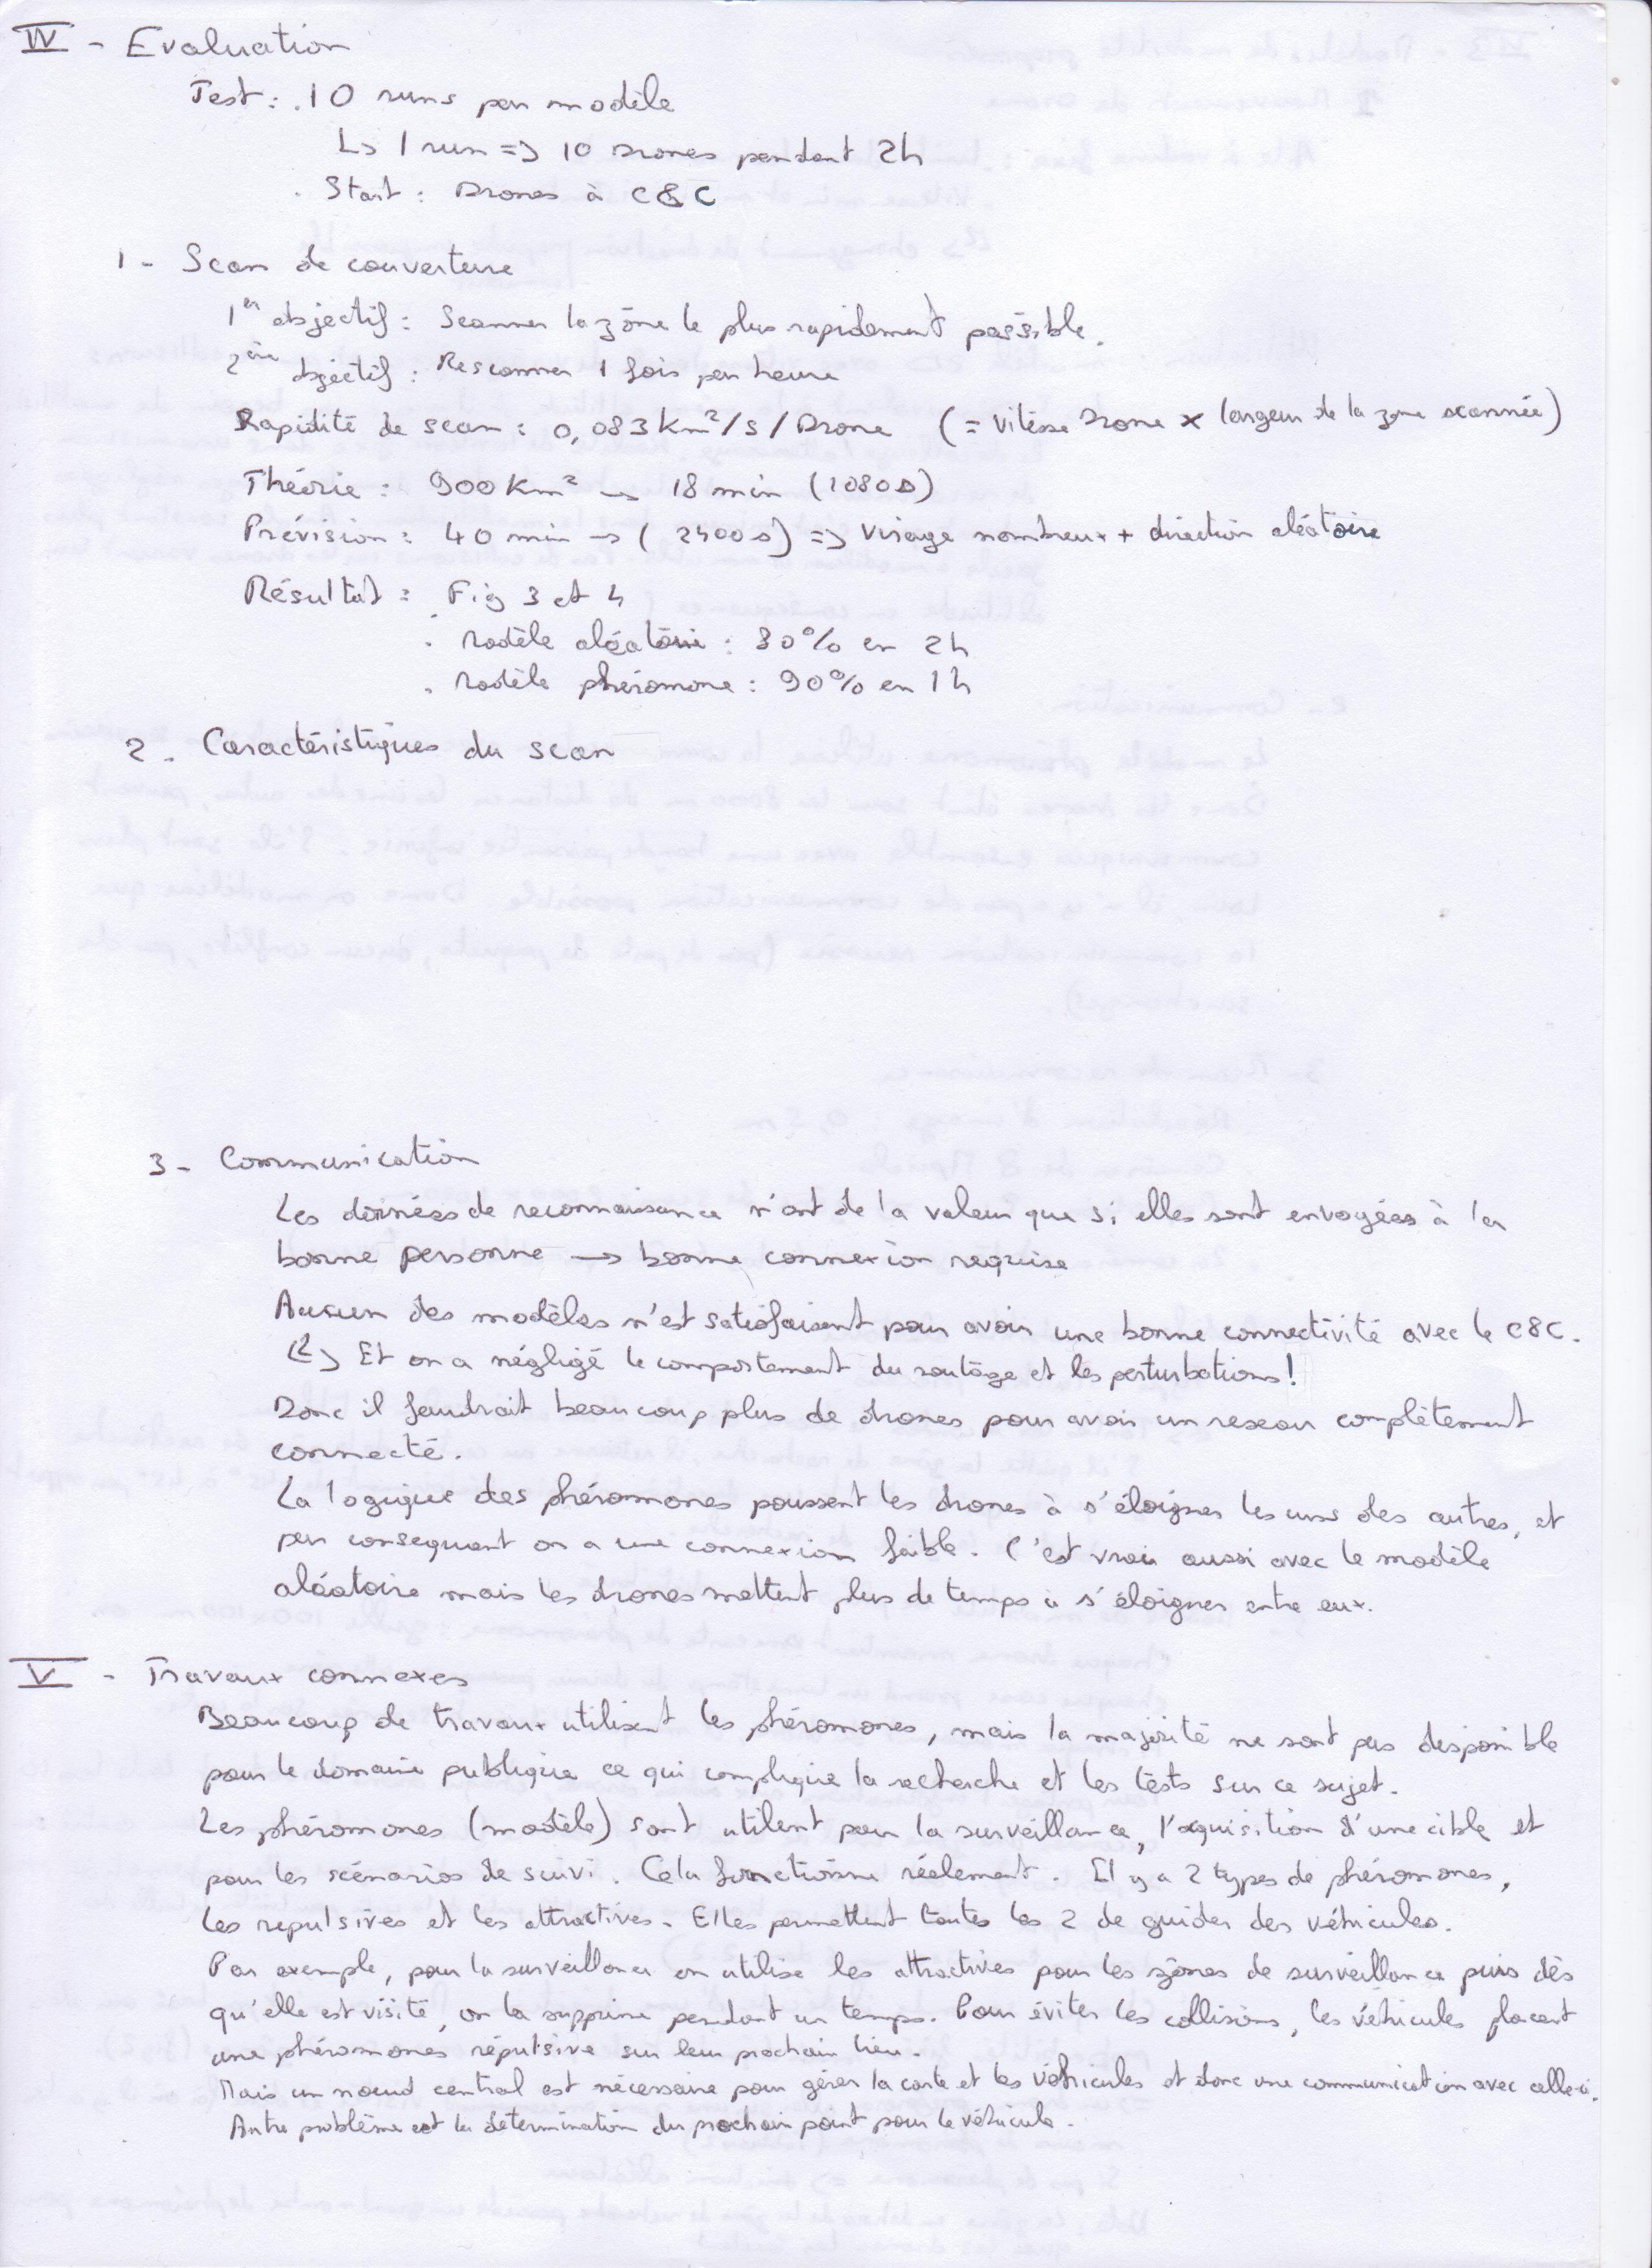 IV - Evaluation
Test : . 10 runs par modèle
↳ 1 run => 10 Drones pendant 2h
. Start : Drones à C&C
1 - Scan de couverture
1er objectif : Scanner la zône le plus rapidement possible.
2ème objectif : Rescanner 1 fois par heure
Rapidité de scan : 0,083 km²/s/Drone (= Vitesse Drone x largeur de la zone scannée)
Théorie : 900 km² → 18 min (1080s)
Prévision : 40 min → (2400s) => Virage nombreux + direction aléatoire
Résultat : Fig 3 et 4
. Modèle aléatoire : 80% en 2h
. Modèle phéromone : 90% en 1h
2 - Caractéristiques du scan
3 - Communication
Les données de reconnaissance n'ont de la valeur que si elles sont envoyées à la
bonne personne → bonne connexion requise
Aucun des modèles n'est satisfaisant pour avoir une bonne connectivité avec le C&C.
↳ Et on a négligé le comportement du routage et les perturbations !
Donc il faudrait beaucoup plus de drones pour avoir un reseau complètement
connecté.
La logique des phéromones poussent les drones à s'éloigner les uns des autres, et
par consequent on a une connexion faible. C'est vrai aussi avec le modèle
aléatoire mais les drones mettent plus de temps à s'éloigner entre eux.
V - Travaux connexes
Beaucoup de travaux utilisent les phéromones, mais la majorité ne sont pas disponible
pour le domaine publique ce qui complique la recherche et les tests sur ce sujet.
Les phéromones (modèle) sont utilent pour la surveillance, l'aquisition d'une cible et
pour les scénarios de suivi. Cela fonctionne réelement. Il y a 2 types de phéromones,
les repulsives et les attractives. Elles permettent toutes les 2 de guider des véhicules.
Par exemple, pour la surveillance on utilise les attractives pour les zônes de surveillance puis dès
qu'elle est visité, on la supprime pendant un temps. Pour éviter les collisions, les véhicules placent
une phéromones répulsive sur leur prochain lieu.
Mais un nœud central est nécessaire pour gérer la carte et les véhicules et donc une communication avec celle-ci.
Autre problème est la détermination du prochain point pour le véhicule.